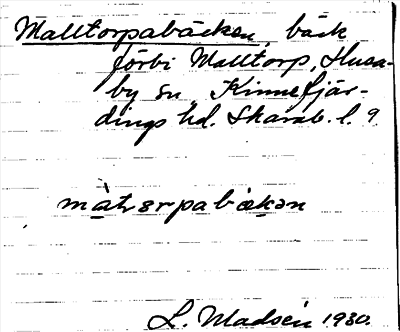 Malltorpabäcken, bäck
förbi Malltorp, Husa-
by sn, Kinnefjär-
dings hd. Skarab. l. 9
L. Madsén 1930.